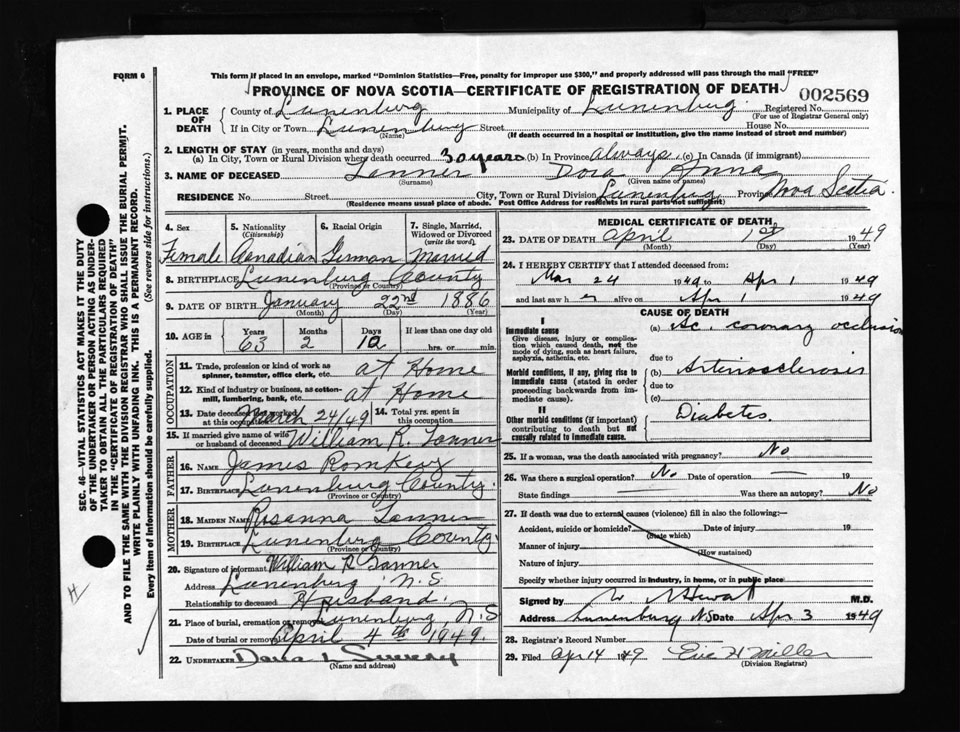 FORM 6
This form if placed in an envelope, marked "Dominion Statistics—Free, penalty for improper use $300," and properly addressed will pass through the mail "FREE"
PROVINCE OF NOVA SCOTIA—CERTIFICATE OF REGISTRATION OF DEATH
002569
1. PLACE OF DEATH
County of Lunenburg Municipality of Lunenburg. Registered No.
(For use of Registrar General only)
If in City or Town Lunenburg Street House No.
(Name) (If death occurred in a hospital or institution, give the name instead of street and number)
2. LENGTH OF STAY (in years, months and days)
(a) In City, Town or Rural Division where death occurred 30 years (b) In Province Always (c) In Canada (if immigrant)
3. NAME OF DECEASED Tanner Dora Anna
(Surname) (Given name or names)
RESIDENCE No. Street City, Town or Rural Division Lunenburg Province Nova Scotia.
(Residence means usual place of abode. Post Office Address for residents in rural parts not sufficient)
4. Sex
Female
5. Nationality (Citizenship)
Canadian
6. Racial Origin
German
7. Single, Married, Widowed or Divorced (write the word)
Married
8. BIRTHPLACE Lunenburg County
(Province or Country)
9. DATE OF BIRTH January 22nd 1886
(Month) (Day) (Year)
10. AGE in Years 63 Months 2 Days 10 If less than one day old
hrs. or min.
OCCUPATION
11. Trade, profession or kind of work as spinner, teamster, office clerk, etc. at Home
12. Kind of industry or business, as cotton-mill, lumbering, bank, etc. at Home
13. Date deceased last worked at this occupation March 24/49 14. Total yrs. spent in this occupation
15. If married give name of wife or husband of deceased William R. Tanner
FATHER
16. NAME James Romkey
17. BIRTHPLACE Lunenburg County.
(Province or Country)
MOTHER
18. MAIDEN NAME Rosanna Tanner
19. BIRTHPLACE Lunenburg County
(Province or Country)
20. Signature of informant William R Tanner
Address Lunenburg N.S
Relationship to deceased Husband.
21. Place of burial, cremation or removal Lunenburg, N.S
Date of burial or removal April 4th 1949.
22. UNDERTAKER
(Name and address)
MEDICAL CERTIFICATE OF DEATH
23. DATE OF DEATH April 1st 1949
(Month) (Day) (Year)
24. I HEREBY CERTIFY that I attended deceased from:
Mar 24 1949 to Apr 1 1949
and last saw her alive on Apr 1 1949
CAUSE OF DEATH
I
Immediate cause
Give disease, injury or complication which caused death, not the mode of dying, such as heart failure, asphyxia, asthenia, etc.
(a) Ac. coronary occlusion
due to
Morbid conditions, if any, giving rise to immediate cause (stated in order proceeding backwards from immediate cause).
(b) Arteriosclerosis
due to
(c)
II
Other morbid conditions (if important) contributing to death but not causally related to immediate cause.
Diabetes.
25. If a woman, was the death associated with pregnancy? No
26. Was there a surgical operation? No Date of operation 19
State findings Was there an autopsy? No
27. If death was due to external causes (violence) fill in also the following:—
Accident, suicide or homicide? Date of injury 19
(State which)
Manner of injury
(How sustained)
Nature of injury
Specify whether injury occurred in industry, in home, or in public place
Signed by M.D.
Address Lunenburg NS Date Apr 3 1949
28. Registrar's Record Number
29. Filed Apr 14 1949 Eric H Miller
(Division Registrar)
SEC. 46—VITAL STATISTICS ACT MAKES IT THE DUTY
OF THE UNDERTAKER OR PERSON ACTING AS UNDER-
TAKER TO OBTAIN ALL THE PARTICULARS REQUIRED
IN THE "CERTIFICATE OF REGISTRATION OF DEATH"
AND TO FILE THE SAME WITH THE DIVISION REGISTRAR WHO SHALL ISSUE THE BURIAL PERMIT.
WRITE PLAINLY WITH UNFADING INK. THIS IS A PERMANENT RECORD.
Every item of information should be carefully supplied. (See reverse side for instructions.)
H